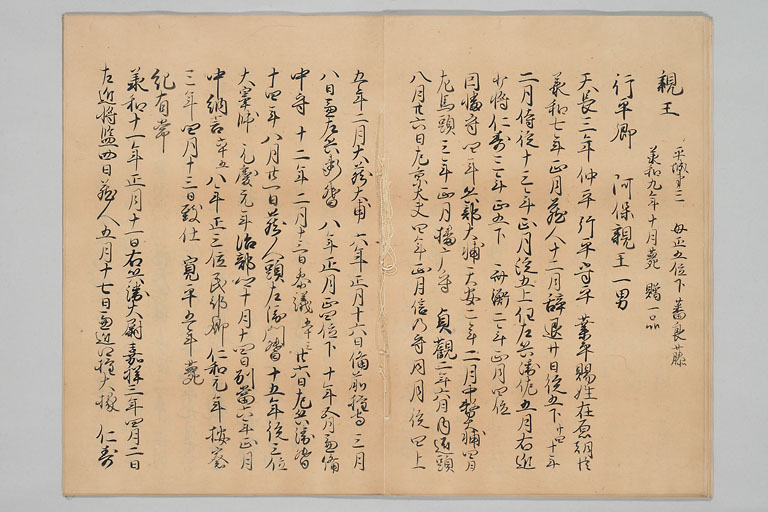 親王
平城第三 母正五位下葛良藤
承和九年十月薨 贈一品
行平卿 阿保親王一男
天長三年仲平行平守平業平賜姓在原朝臣
承和七年正月蔵人十二月辞退廿日従五下 十年
二月侍従十三年正月従五上任左兵衛佐五月右近
少将仁寿三年正五下 斉衡二年正月四位
因幡守四年兵部大輔天安二年二月中務大輔四月
左馬頭三年正月播广守 貞観二年六月内匠頭
八月廿六日左京大夫四年正月信乃守同月従四上
五年二月大蔵大輔 六年正月十六日備前権守三月
八日兼左兵衛督 八年正月正四位下 十年五月兼備
中守 十二年二月十三日参議 廿六日左兵衛督
十四年八月廿一日蔵人頭左衛門督十五年従三位
大宰帥 元慶元年治部卿十月十四日別当六年正月
中納言 八年正三位民部卿 仁和元年按察
三年四月十三日致仕 寛平五年薨
紀有常
承和十一年正月十一日右兵衛大尉嘉祥三年四月二日
左近将監四日蔵人五月十七日兼近江権大掾 仁寿